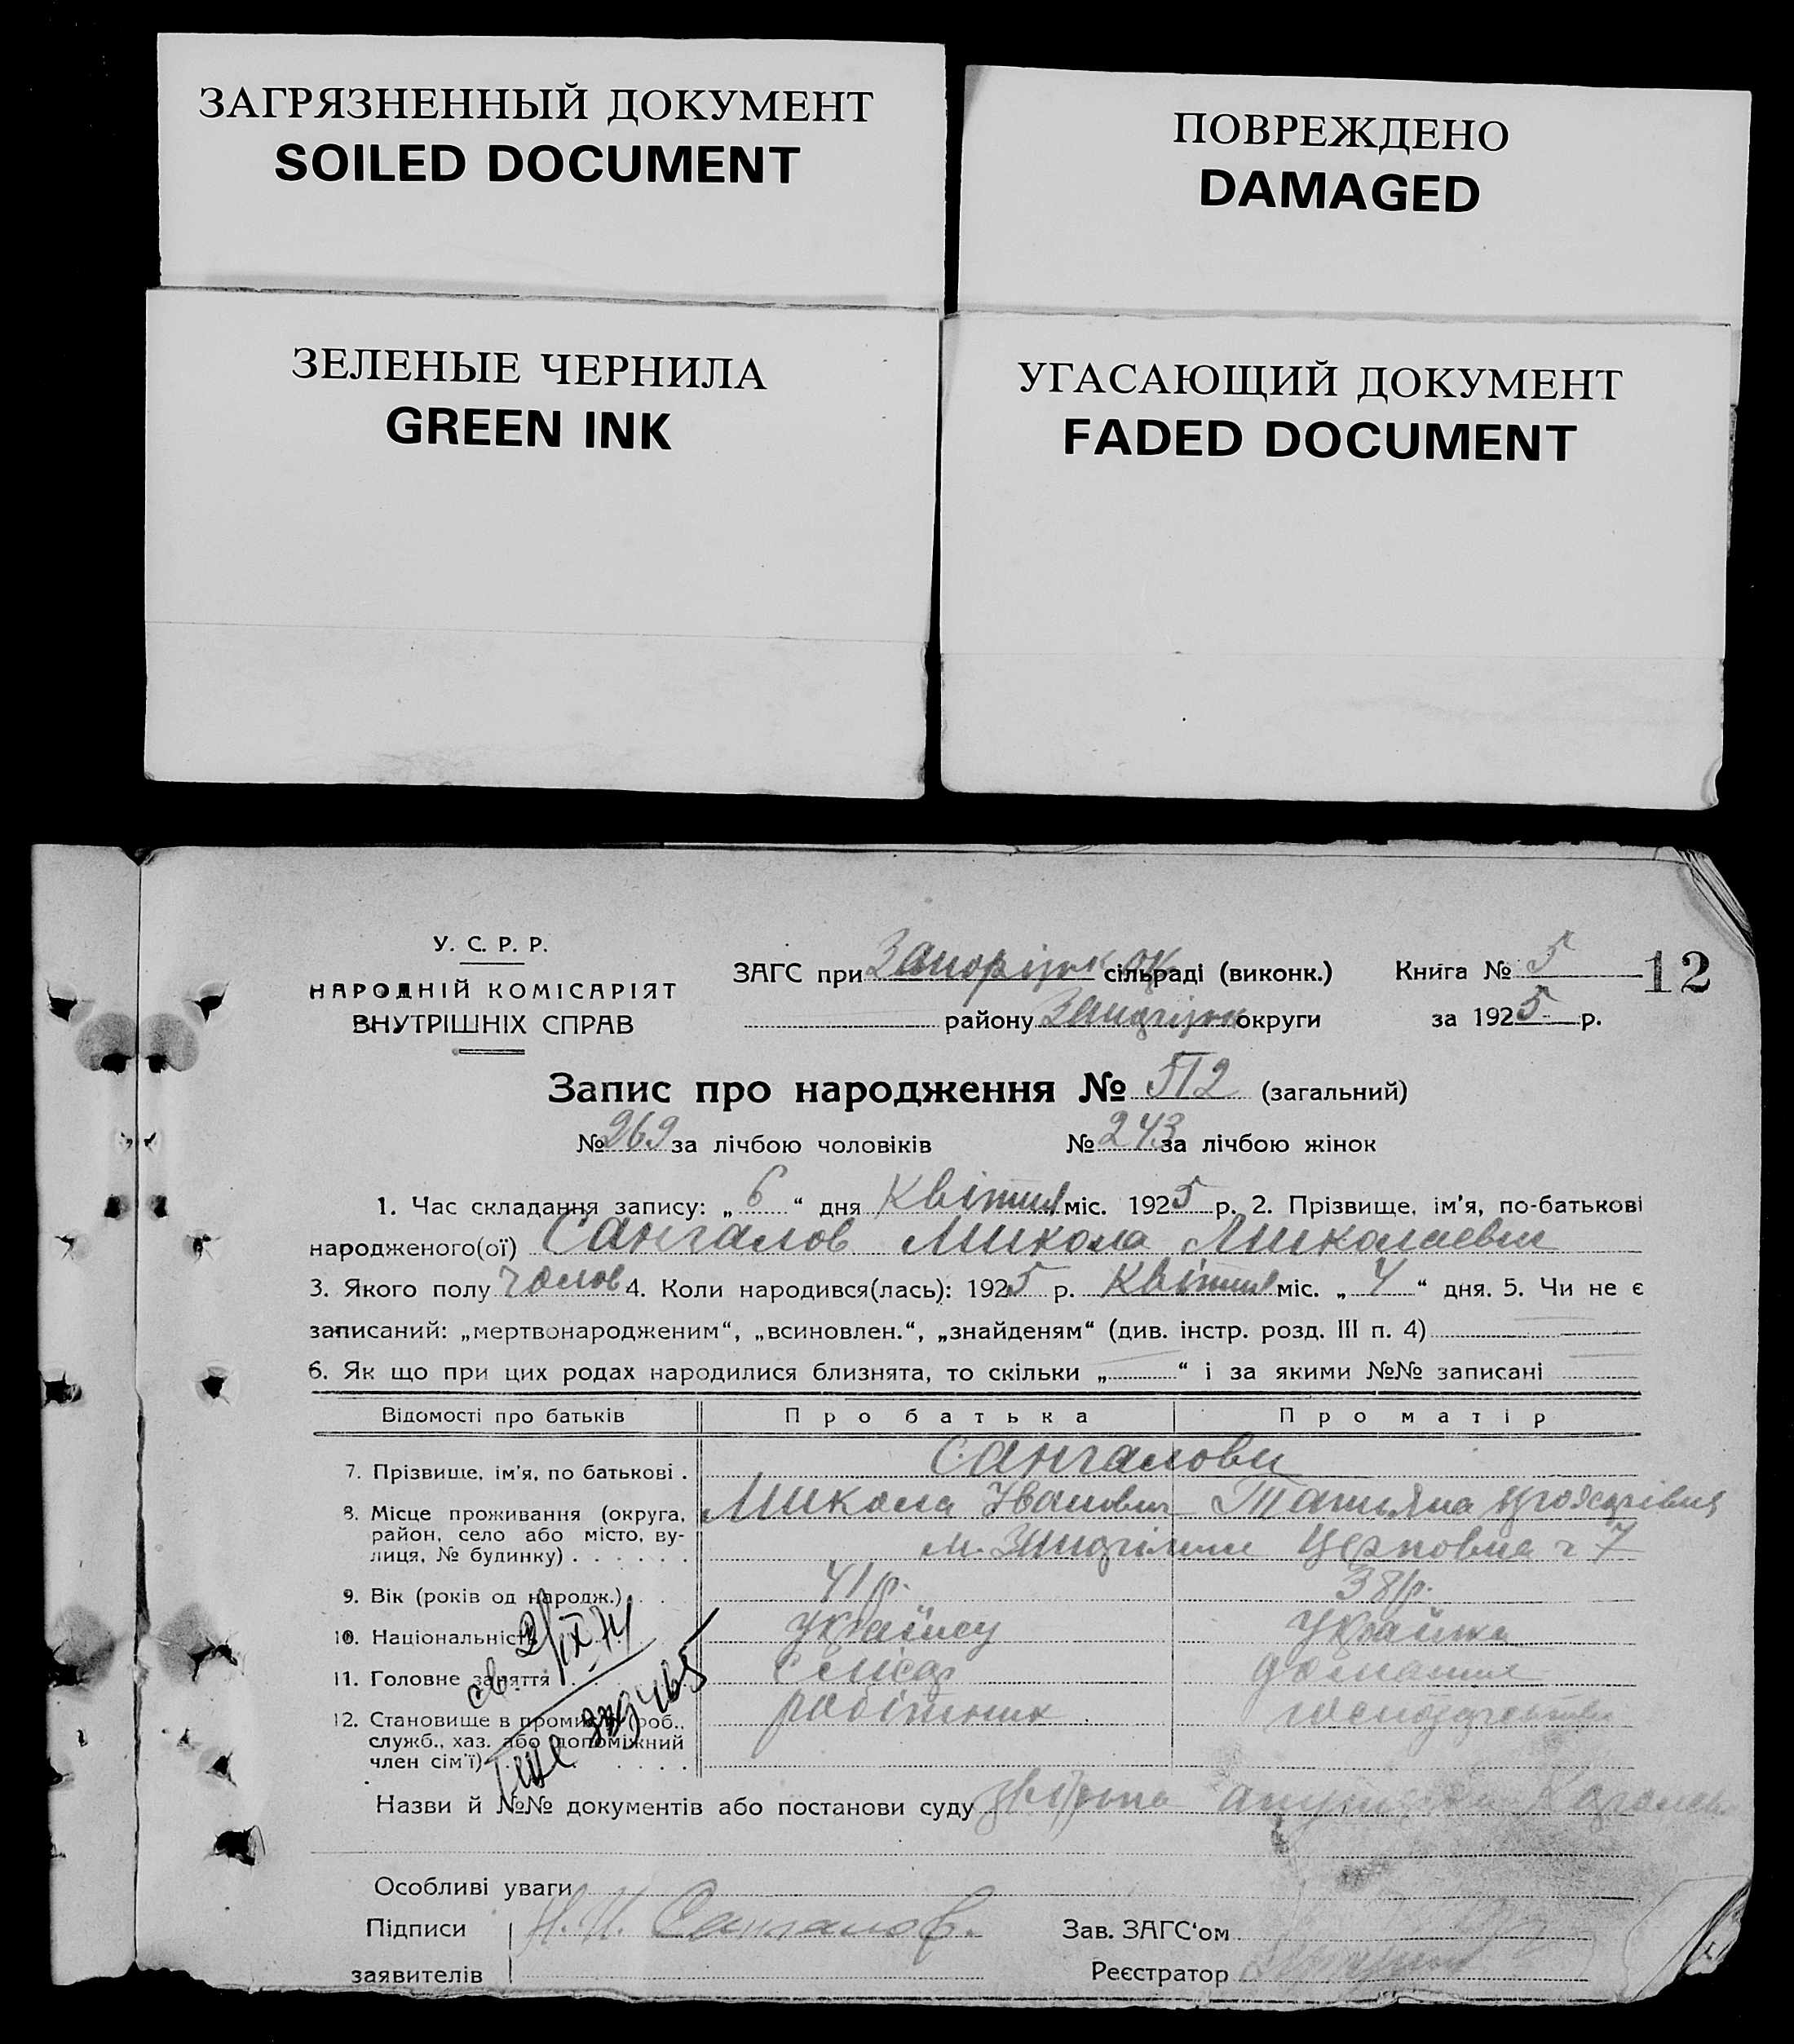 ЗАГРЯЗНЕННЫЙ ДОКУМЕНТ
SOILED DOCUMENT
ПОВРЕЖДЕНО
DAMAGED
ЗЕЛЕНЫЕ ЧЕРНИЛА
GREEN INK
УГАСАЮЩИЙ ДОКУМЕНТ
FADED DOCUMENT
У. С. Р. Р.
НАРОДНІЙ КОМІСАРІЯТ
ВНУТРІШНІХ СПРАВ
ЗАГС при Запоріжск ок сільраді (виконк.)
району Запоріжск округи
Книга № 5
за 1925 р.
12
Запис про народження № 512 (загальний)
№ 269 за лічбою чоловіків № 243 за лічбою жінок
1. Час складання запису: „ 6 “ дня Квітня міс. 1925 р. 2. Прізвище, ім'я, по-батькові
народженого(ої) Сангалов Микола Миколаевич
3. Якого полу чолов 4. Коли народився(лась): 1925 р. Квітня міс. „ 4 “ дня. 5. Чи не є
записаний: „мертвонародженим“, „всиновлен.“, „знайденям“ (див. інстр. розд. III п. 4)
6. Як що при цих родах народилися близнята, то скільки „ “ і за якими №№ записані
Відомості про батьків Про батька Про матір
7. Прізвище, ім'я, по батькові . Сангалови
Микола Иванович Татьяна
8. Місце проживання (округа,
район, село або місто, ву-
лиця, № будинку) . . . . . . м. 7
9. Вік (років од народж.) . . 41 р. 38 р.
10. Національність українец українка
11. Головне заняття слюсар домашне
12. Становище в промислі (роб.,
служб., хаз. або допоміжний
член сім'ї) робітник господарство
Назви й №№ документів або постанови суду
Особливі уваги
Підписи Н. И. Сангалов.
заявителів
Зав. ЗАГС‘ом
Реєстратор